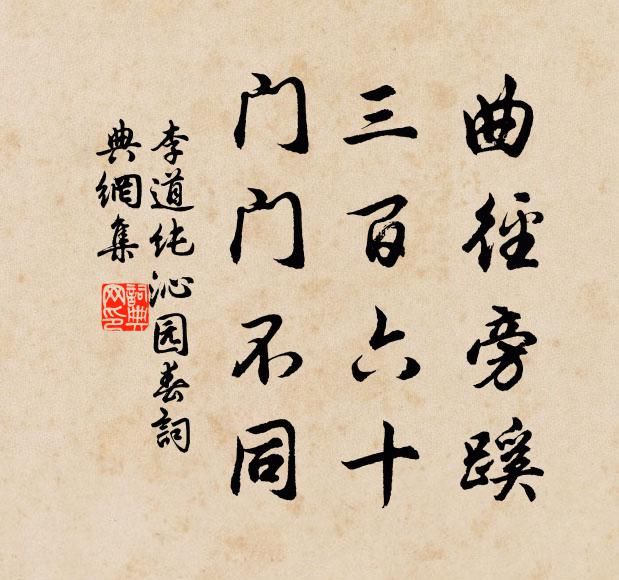 曲径旁蹊
三百六十
门门不同
李道纯沁园春词
典網集
詞典网印